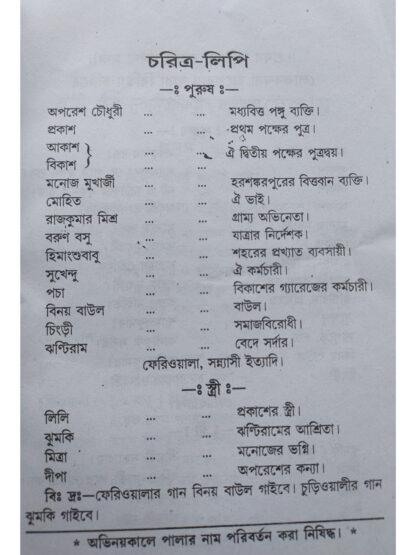 চরিত্র-লিপি
—ঃ পুরুষ ঃ—
অপরেশ চৌধুরী ... ... মধ্যবিত্ত পঙ্গু ব্যক্তি।
প্রকাশ ... ... প্রথম পক্ষের পুত্র।
আকাশ
বিকাশ } ... ... ঐ দ্বিতীয় পক্ষের পুত্রদ্বয়।
মনোজ মুখার্জী ... ... হরশঙ্করপুরের বিত্তবান ব্যক্তি।
মোহিত ... ... ঐ ভাই।
রাজকুমার মিশ্র ... ... গ্রাম্য অভিনেতা।
বরুণ বসু ... ... যাত্রার নির্দেশক।
হিমাংশুবাবু ... ... শহরের প্রখ্যাত ব্যবসায়ী।
সুখেন্দু ... ... ঐ কর্মচারী।
পচা ... ... বিকাশের গ্যারেজের কর্মচারী।
বিনয় বাউল ... ... বাউল।
চিংড়ী ... ... সমাজবিরোধী।
ঝন্টিরাম ... ... বেদে সর্দার।
ফেরিওয়ালা, সন্ন্যাসী ইত্যাদি।
—ঃ স্ত্রী ঃ—
লিলি ... ... প্রকাশের স্ত্রী।
ঝুমকি ... ... ঝন্টিরামের আশ্রিতা।
মিত্রা ... ... মনোজের ভগ্নি।
দীপা ... ... অপরেশের কন্যা।
বিঃ দ্রঃ—ফেরিওয়ালার গান বিনয় বাউল গাইবে। চুড়িওয়ালীর গান
ঝুমকি গাইবে।
* অভিনয়কালে পালার নাম পরিবর্তন করা নিষিদ্ধ। *